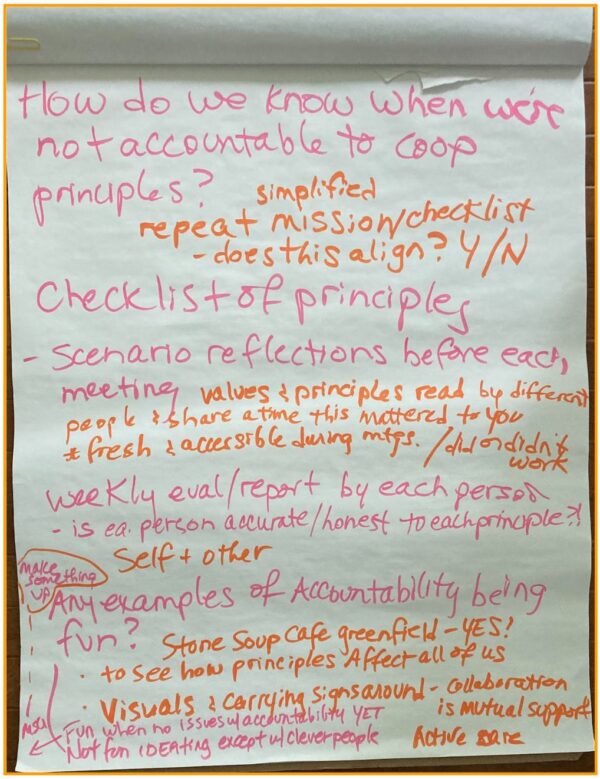 How do we know when we're
not accountable to coop
principles?
simplified
repeat mission/checklist
- does this align? Y/N
Checklist of principles
- Scenario reflections before each
meeting values & principles read by different
people & share a time this mattered to you
* fresh & accessible during mtgs. /did or didn't
work
weekly eval/report by each person
- is ea. person accurate/honest to each principle?!
Self + other
make
something
up
Any examples of Accountability being
fun?
Stone Soup Cafe greenfield - YES!
· to see how principles Affect all of us
· Visuals & carrying signs around - collaboration
is mutual support
Fun when no issues w/ accountability YET
Not fun IDEAting except w/ clever people
Active